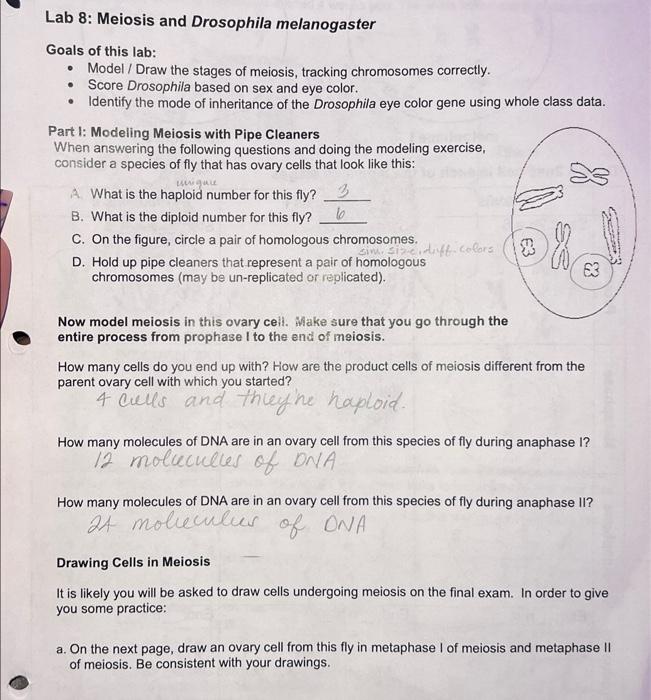 Lab 8: Meiosis and Drosophila melanogaster
Goals of this lab:
• Model / Draw the stages of meiosis, tracking chromosomes correctly.
• Score Drosophila based on sex and eye color.
• Identify the mode of inheritance of the Drosophila eye color gene using whole class data.
Part I: Modeling Meiosis with Pipe Cleaners
When answering the following questions and doing the modeling exercise,
consider a species of fly that has ovary cells that look like this:
unique
A. What is the haploid number for this fly? 3
B. What is the diploid number for this fly? 6
C. On the figure, circle a pair of homologous chromosomes.
sim. size, diff. colors
D. Hold up pipe cleaners that represent a pair of homologous
chromosomes (may be un-replicated or replicated).
Now model meiosis in this ovary cell. Make sure that you go through the
entire process from prophase I to the end of meiosis.
How many cells do you end up with? How are the product cells of meiosis different from the
parent ovary cell with which you started?
4 cells and they're haploid.
How many molecules of DNA are in an ovary cell from this species of fly during anaphase I?
12 molecules of DNA
How many molecules of DNA are in an ovary cell from this species of fly during anaphase II?
24 molecules of DNA
Drawing Cells in Meiosis
It is likely you will be asked to draw cells undergoing meiosis on the final exam. In order to give
you some practice:
a. On the next page, draw an ovary cell from this fly in metaphase I of meiosis and metaphase II
of meiosis. Be consistent with your drawings.